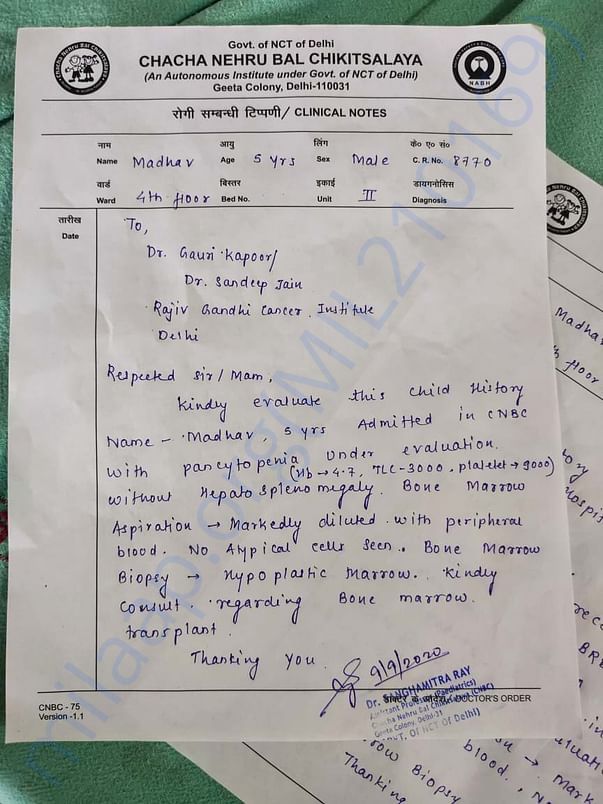 Govt. of NCT of Delhi
CHACHA NEHRU BAL CHIKITSALAYA
(An Autonomous Institute under Govt. of NCT of Delhi)
Geeta Colony, Delhi-110031
NABH
रोगी सम्बन्धी टिप्पणी/ CLINICAL NOTES
नाम आयु लिंग के० ए० सं०
Name Madhav Age 5 yrs Sex Male C. R. No. 8770
वार्ड बिस्तर इकाई डायगनोसिस
Ward 4th floor Bed No. Unit II Diagnosis
तारीख
Date
To,
Dr. Gauri Kapoor/
Dr. Sandeep Jain
Rajiv Gandhi Cancer Institute
Delhi
Respected Sir / Mam,
Kindly evaluate this child History
Name - Madhav, 5 yrs Admitted in CNBC
with pancytopenia under evaluation.
(Hb → 4.7, TLC-3000, platelet → 9000)
without Hepatosplenomegaly. Bone Marrow
Aspiration → Markedly diluted with peripheral
blood. No Atypical cells seen. Bone Marrow
Biopsy → Hypoplastic Marrow. Kindly
Consult regarding Bone marrow
transplant.
Thanking You.
9/9/2020
Dr. SANGHAMITRA RAY
Assistant Professor (Paediatrics)
Chacha Nehru Bal Chikitsalaya (CNBC)
Geeta Colony, Delhi-31
(GOVT. OF NCT Of Delhi)
DOCTOR'S ORDER
CNBC - 75
Version -1.1
Madhav
floor
Biopsy
blood.
Thanking
milaap.org/MIL210169